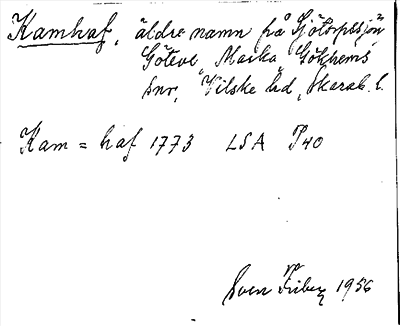 Kamhaf, äldre namn på Sjötorpesjön
Göteve, Marka, Gökhems
snr, Vilske hd, Skarab. l.
Kam = haf 1773 LSA P40
Sven Friberg 1956